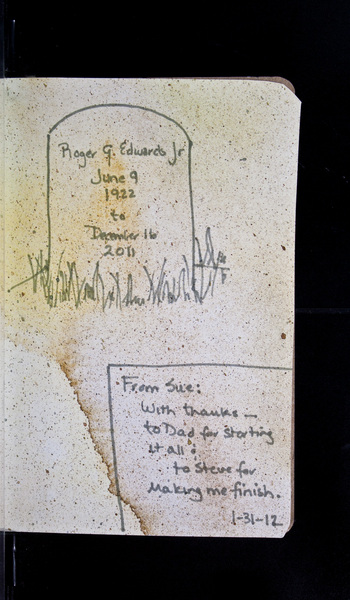 Roger G. Edwards Jr
June 9
1922
to
December 16
2011
From Sue:
With thanks —
to Dad for starting
it all &
to Steve for
Making me finish.
1-31-12